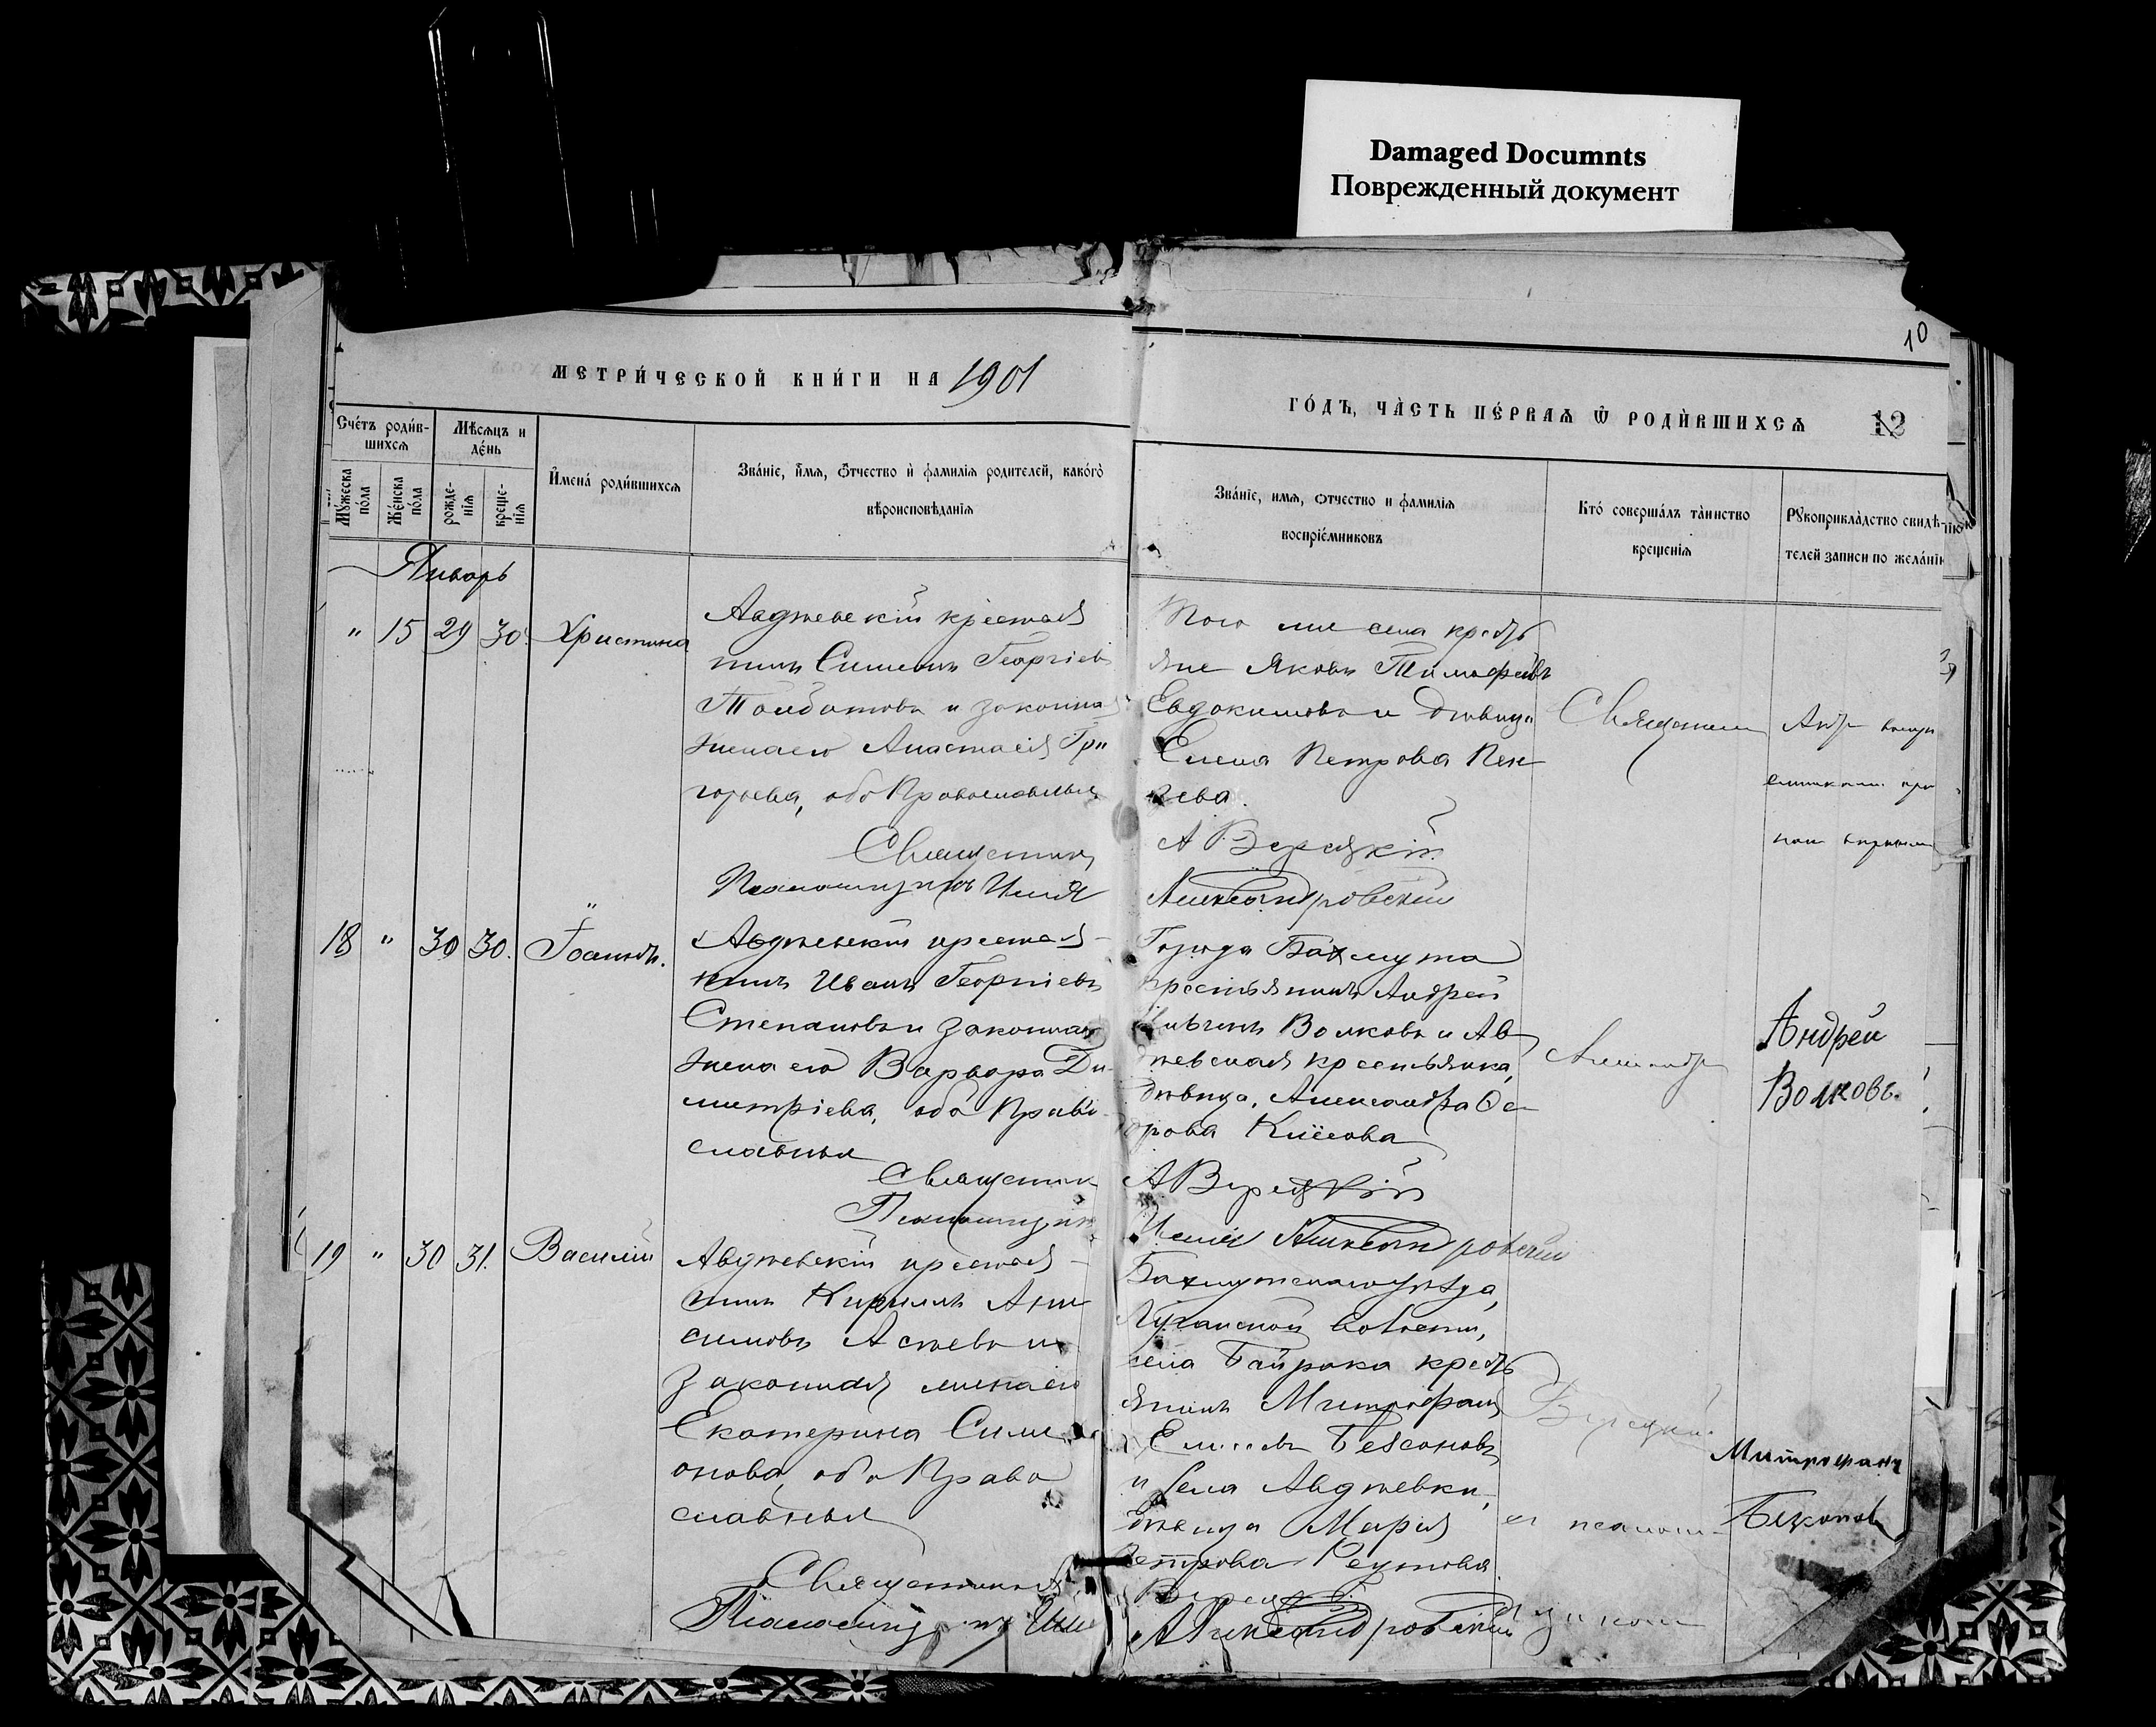 Damaged Documnts
Поврежденный документ
10
МЕТРИ́ЧЕСКОЙ КНИ́ГИ НА 1901
ГО́ДЪ, ЧА̀СТЬ ПЕ́РВАѦ Ѡ҆ РОДЍВШИХСѦ 12
Сче́тъ роди́в-
шихсѧ
Мꙋ́жеска по́ла
Же́нска по́ла
Мѣ́сѧцъ и
де́нь
рожде-
нїѧ
креще-
нїѧ
И҆мена́ роди́вшихсѧ
Зва́нїе, и҆́мѧ, ѻ҆́тчество и҆ фами́лїѧ родителей, како́гѡ
вѣроисповѣ́данїѧ
Зва́нїе, имѧ, ѻтчество и фамилїѧ
воспрїе́мниковъ
Кто́ соверша́лъ та́инство
крещенїѧ
Рꙋкоприкла̀дство свидѣ-
телей записи по жела́нїю
Январь
" 15 29 30. Христина
Авдѣевскій крестья
нинъ Симеонъ Георгіевъ
и законная
жена его Анастасія Гри
горьева, оба Православные
Священникъ
Псаломщикъ Илія
Того же села кресть
яне Яковъ Тимофѣевъ
Евдокимовъ и дѣвица
Елена Петрова
А Верецкій
Александровскій
Священник
18 " 30 30. Іоаннъ.
Авдѣевскій крестья-
нинъ Иванъ Георгіевъ
Степановъ и законная
жена его Варвара Ди-
митріева, оба Право-
славные
Священник
Псаломщик
Города Бахмута
крестьянинъ Андрей
Волковъ и Ав
дѣевская крестьянка,
дѣвица, Александра Ѳе-
дорова
А Верецкій
Илія Александровскій
Александр
Андрей
Волковъ.
19 " 30 31. Василій
Авдѣевскій крестья-
нинъ Кириллъ Ани
симовъ и
законная жена его
Екатерина Симе
онова, оба Право
славные
Священникъ
Псаломщикъ Илія
Бахмутскаго уѣзда,
Луганской волости,
села Байрака кресть
янинъ Митрофанъ
и села Авдѣевки,
дѣвица Марія
Петрова Реутова.
Верецкій
Александровскій
Верецкій
съ псалом-
щиком
Митрофанъ